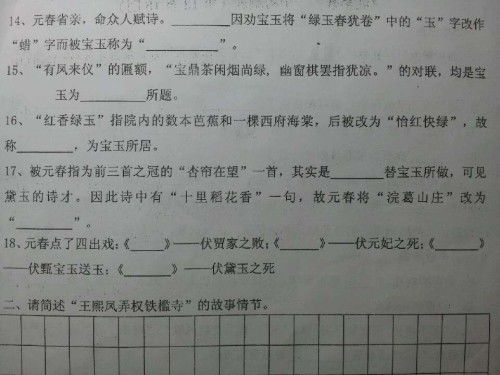 14、元春省亲，命众人赋诗。________因劝宝玉将“绿玉春犹卷”中的“玉”字改作
“蜡”字而被宝玉称为“________”。
15、“有凤来仪”的匾额，“宝鼎茶闲烟尚绿，幽窗棋罢指犹凉。”的对联，均是宝
玉为________所题。
16、“红香绿玉”指院内的数本芭蕉和一棵西府海棠，后被改为“怡红快绿”，故
称________，为宝玉所居。
17、被元春指为前三首之冠的“杏帘在望”一首，其实是______替宝玉所做，可见
黛玉的诗才。因此诗中有“十里稻花香”一句，故元春将“浣葛山庄”改为
“________”。
18、元春点了四出戏：《_____》——伏贾家之败；《______》——伏元妃之死；《_______》
——伏甄宝玉送玉；《______》——伏黛玉之死
二、请简述“王熙凤弄权铁槛寺”的故事情节。